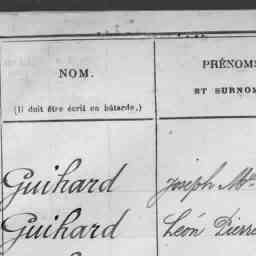 NOM.
(Il doit être écrit en bâtarde.)
PRÉNOMS
ET SURNOM
Guihard Joseph
Guihard Léon Pierre